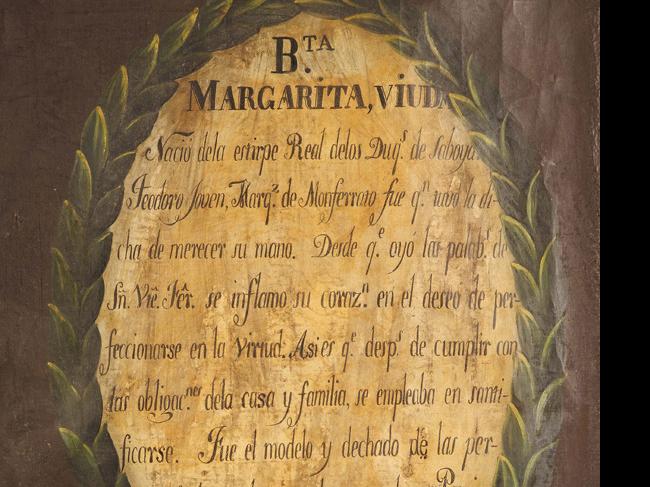 B.TA
MARGARITA, VIUDA
Nació dela estirpe Real delos Duqs. de Saboya.
Teodoro Joven, Marqz. de Monferrato fue qn. tuvo la di-
cha de merecer su mano. Desde qe. oyó las palabs. de
Sn. Vie. Fêr. se inflamo su corazn. en el deseo de per-
feccionarse en la Virtud. Asi es qe. desps. de cumplir con
las obligacnes. dela casa y familia, se empleaba en santi-
ficarse. Fue el modelo y dechado de las per-